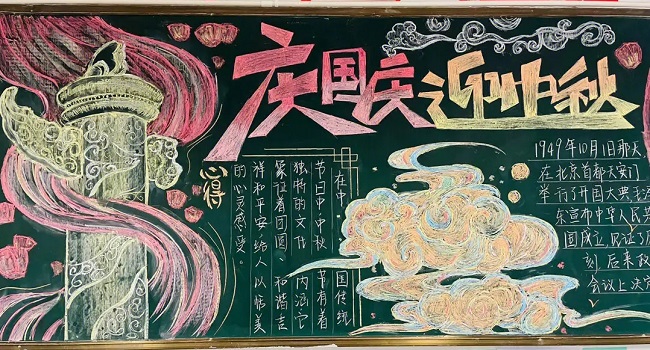 庆国庆 迎中秋
心得
在中国传统
节日中,中秋节有着
独特的文化内涵,它
象征着团圆、和谐、吉
祥和平安,给人以恬美
的心灵感受。
1949年10月1日那天
在北京首都天安门
举行了开国大典,毛泽
东宣布中华人民共
国成立,见证了历
刻,后来政
会议上决定